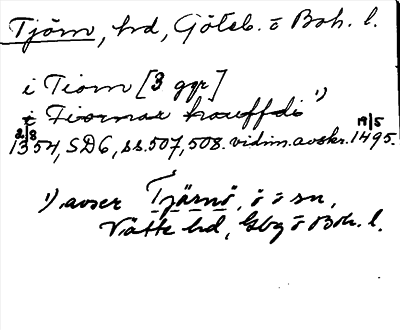 Tjörn, hd, Göteb. o Boh. l.
i Tiorn [3 ggr]
i Tiornar houffdi 1)
2/8 1354, SD6, ss. 507, 508. vidim. avskr. 19/5 1495.
1) avser Tjärnö, ö o sn,
Vätte hd, Gbg o Boh. l.